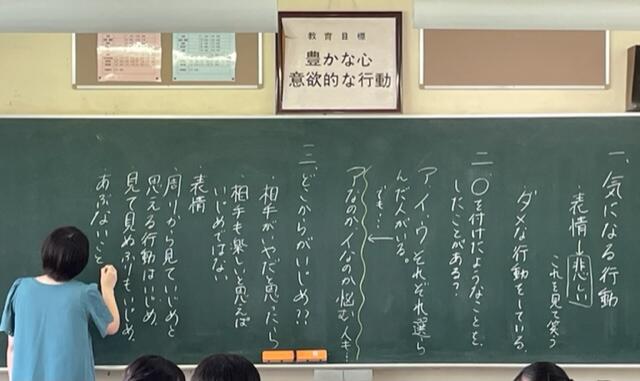 教育目標
豊かな心
意欲的な行動
一、気になる行動
表情→悲しい
これを見て笑う
ダメな行動をしている。
二、〇を付けたようなことを、
したことがある?
ア、イ、ウそれぞれ選ら
んだ人がいる。
でも…
アなのか、イなのか悩む人も…
三、どこからがいじめ??
相手がいやだと思ったら
相手も楽しいと思えば
いじめではない
表情
周りから見ていじめと
思える行動はいじめ。
見て見ぬふりもいじめ。
あぶないこと